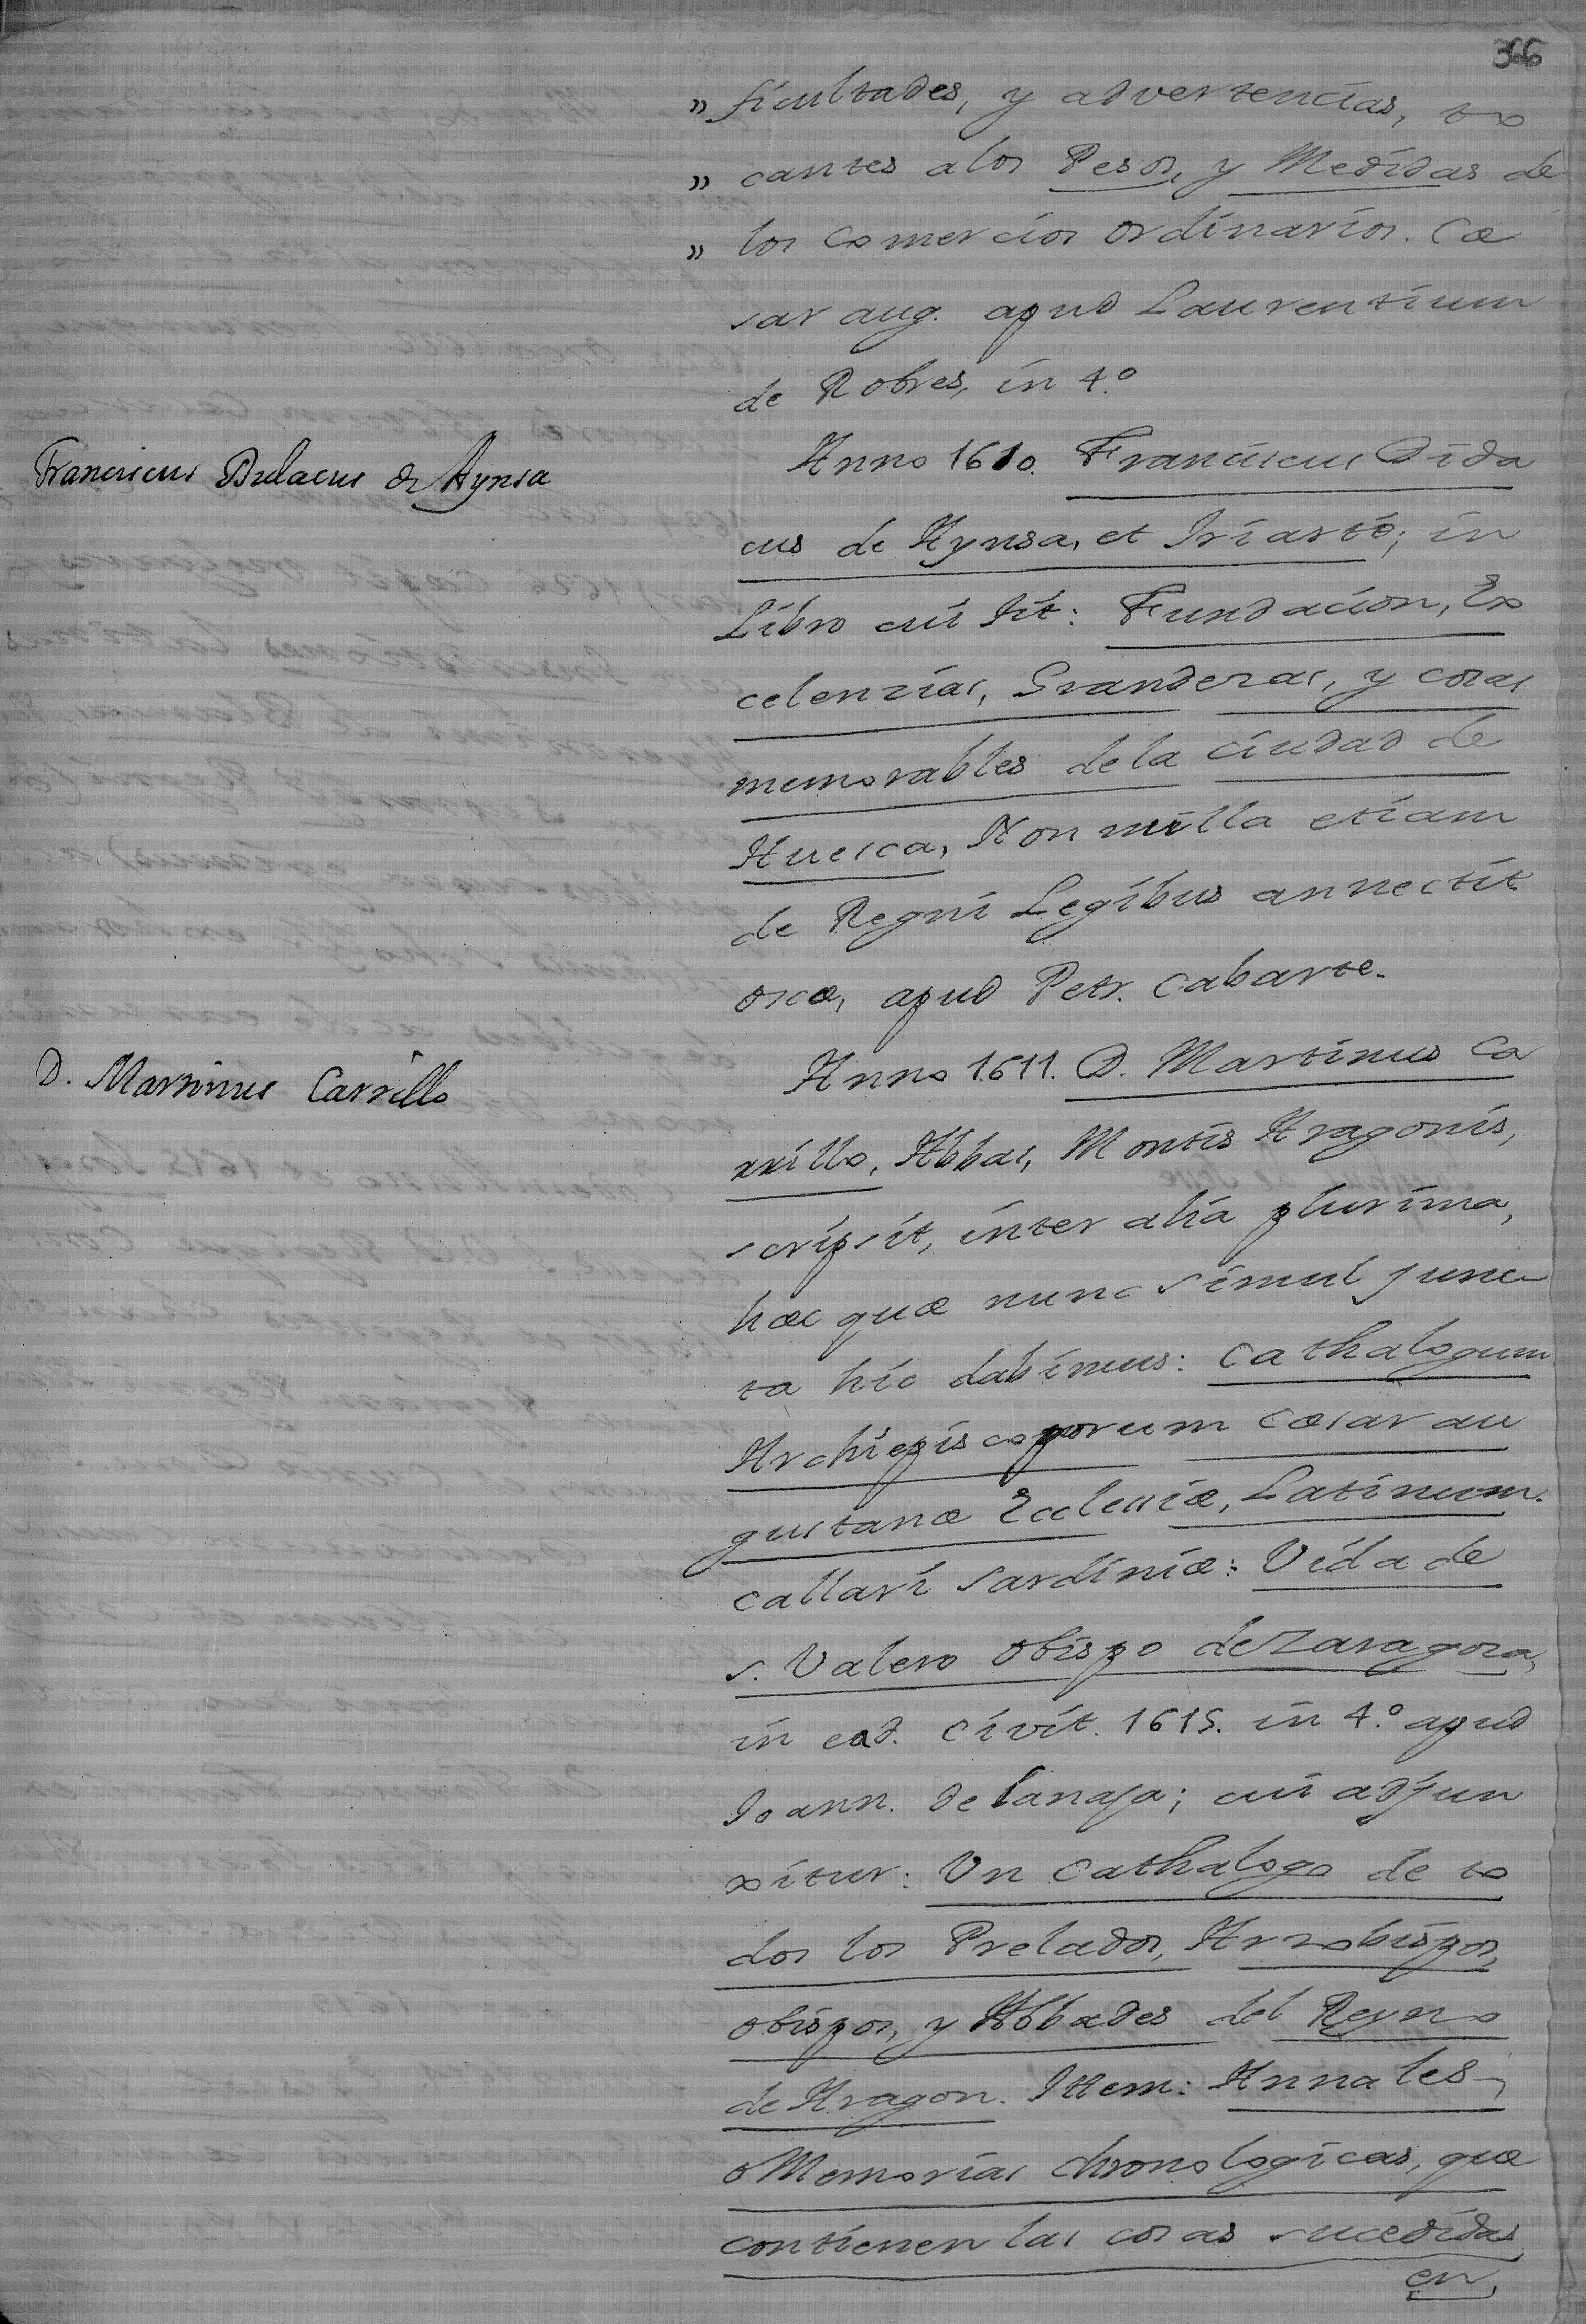 366
" ficultades, y advertencias, to
" cantes a los Pesos, y Medidas de
" los Comercios ordinarios. Cæ
sar aug. apud Laurentium
de Robres, in 4.º
Franciscus Didacus de Aynsa
Anno 1610. Franciscus Dida
cus de Aynsa, et Iriarte; in
Libro cui tit: Fundacion, Ex
celenzias, Grandezas, y cosas
memorables de la Ciudad de
Huesca, Non nulla etiam
de Regni Legibus annectit
oscæ, apud Petr. Cabarte.
D. Martinus Carrillo
Anno 1611. D. Martinus Ca
rrillo, Abbas, Montis Aragonis,
scripsit, inter alia plurima,
hæc quæ nunc simul junc
ta hic dabimus: Cathalogum
Archiepiscoporum Cæsar au
gustanæ Ecclesiæ, Latinum.
Callari Sardiniæ: Vida de
S. Valero Obispo de Zaragoza,
in ead. Civit. 1615. in 4.º apud
Joann. de Lanaja; cui adjun
xitur: Un Cathalogo de to
dos los Prelados, Arzobispos,
obispos, y Abbades del Reyno
de Aragon. Ittem: Annales,
o Memorias chronologicas, que
contienen las cosas sucedidas
en,